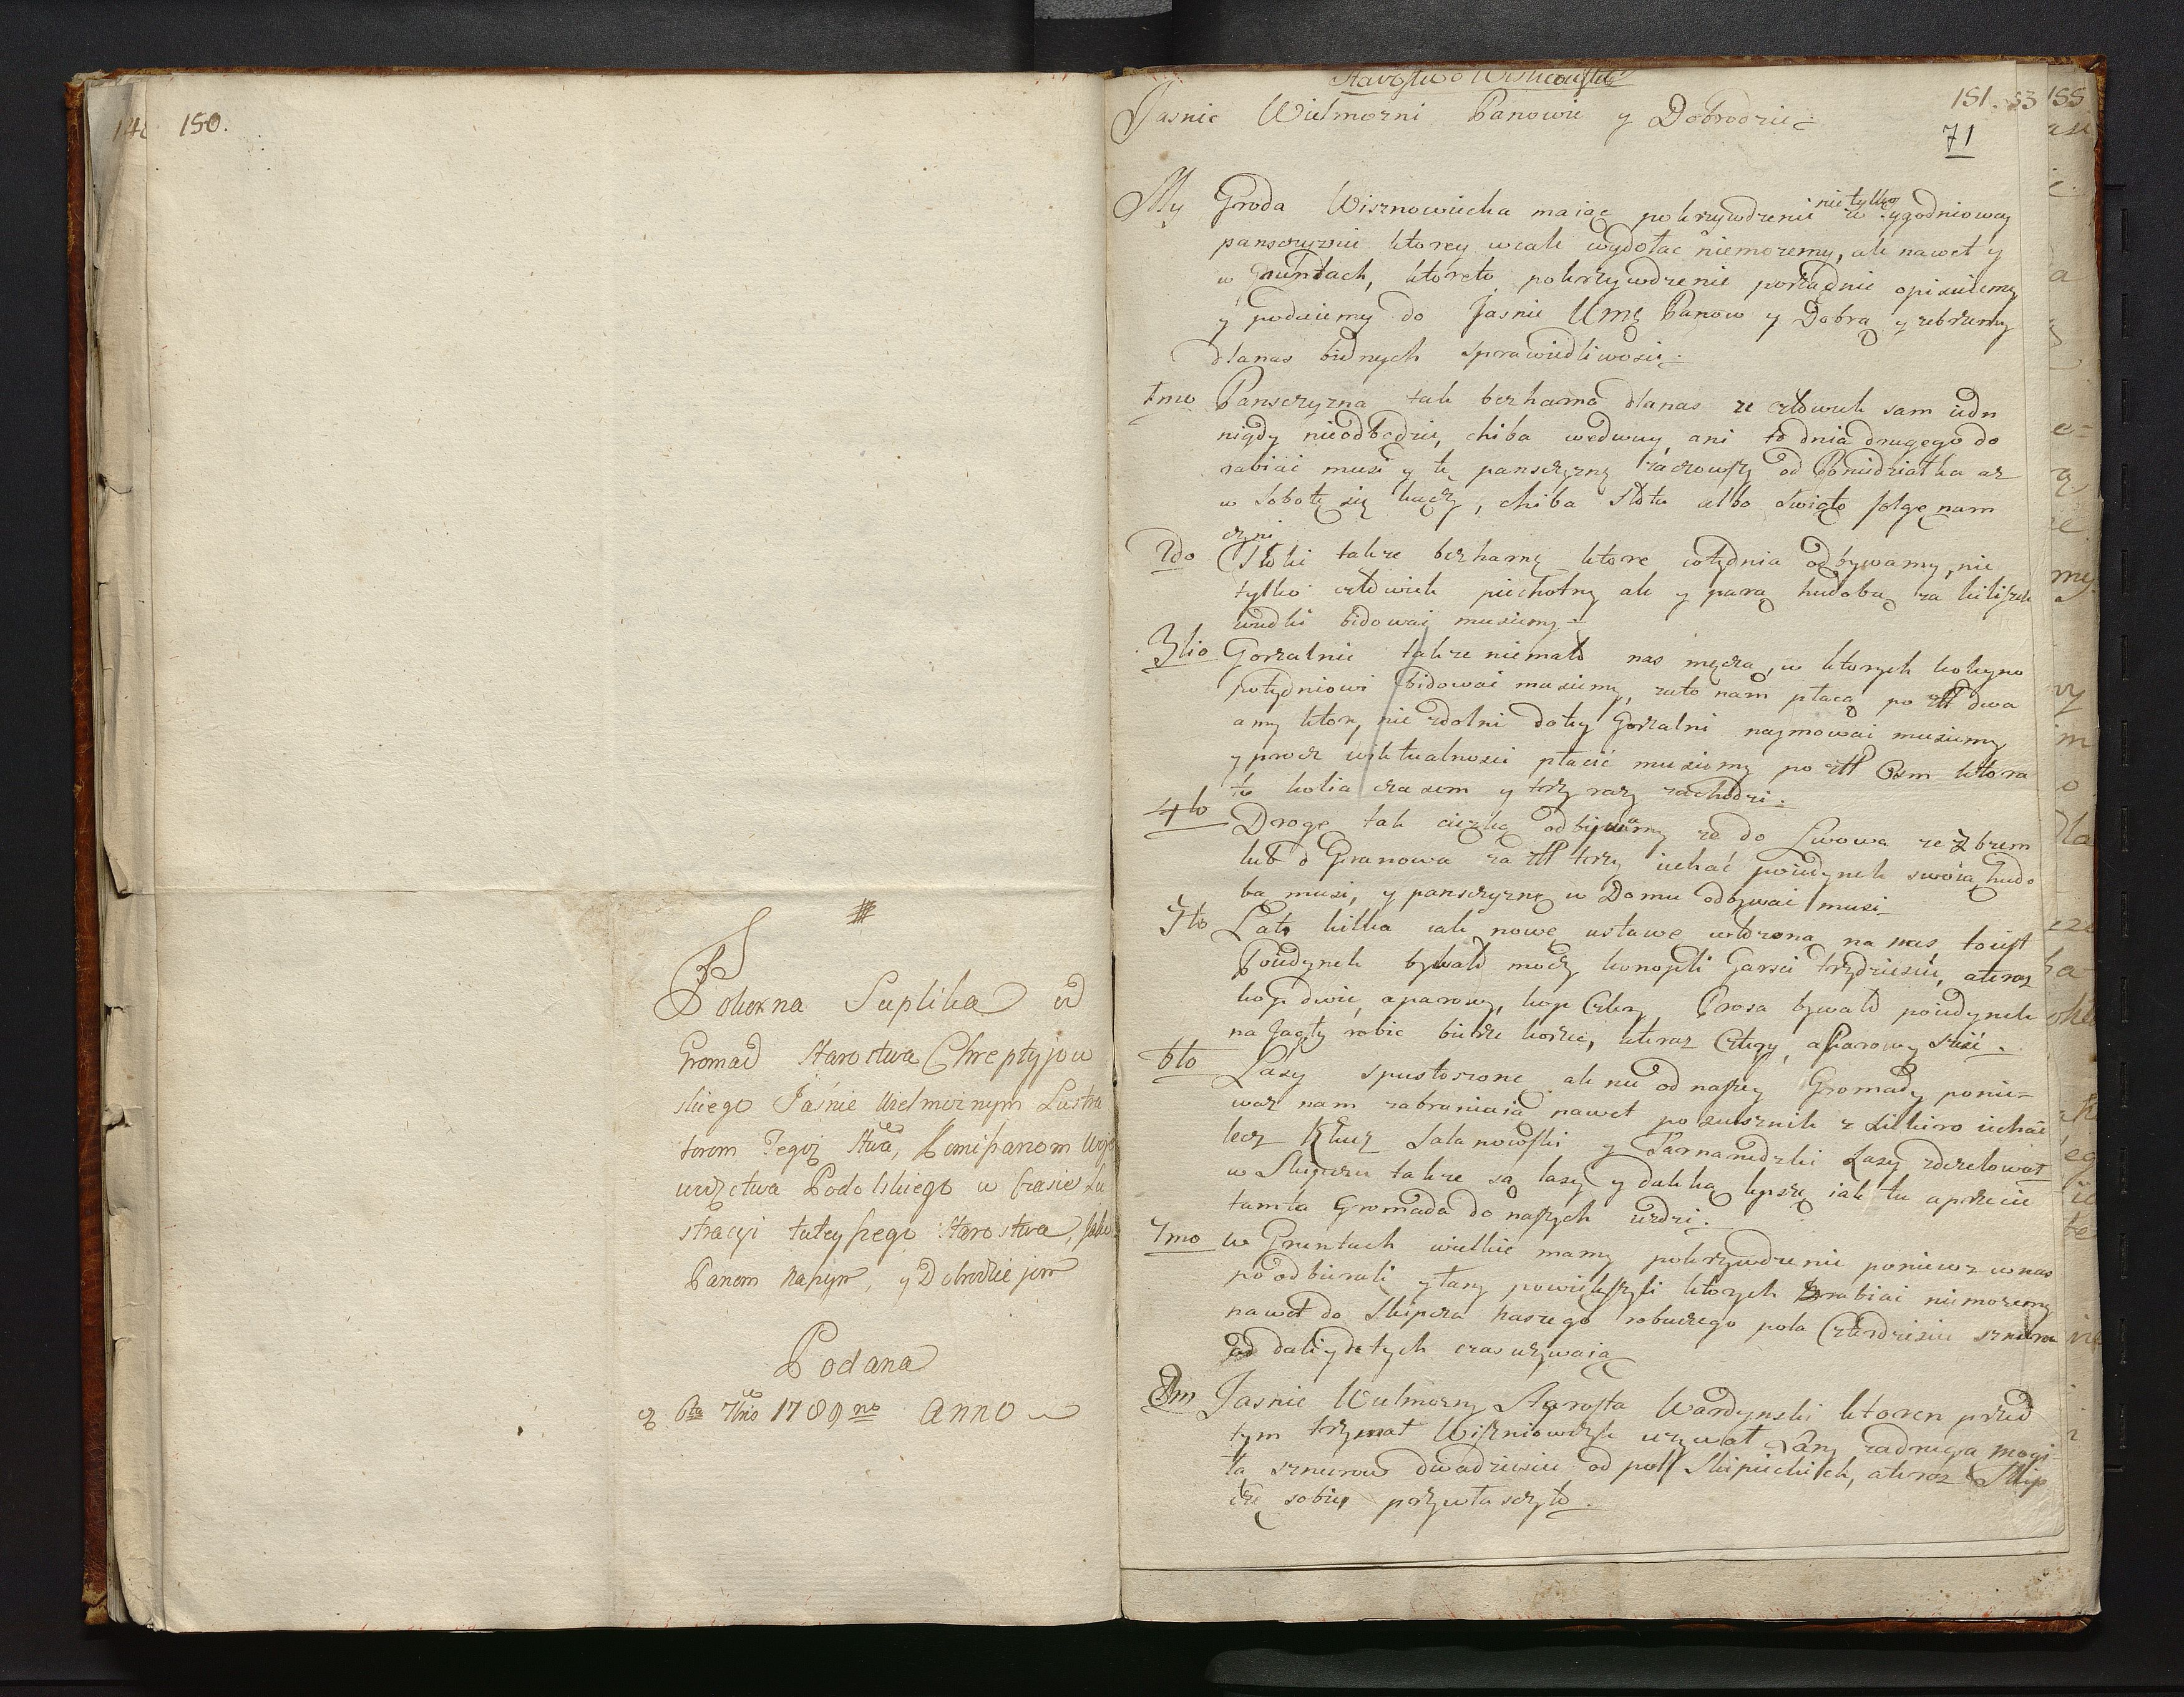 150.
Pokorna Suplika od
Gromad Starostwa Chreptyjow
skiego Jaśnie Wielmoznym Lustra
torom Tegoż Stwa,
Podolskiego w Czasie Lu
stracyi tuteyszego Starostwa, jako
Panom naszym, y Dobrodziejom
Podana
6ta 7bris 1789no Anno
151.
71
Jasnie Wielmozni Panowie y Dobrodzie:
My Groda Wisznowiecka maiąc pokrzywdzenie nie tylko w tygodniowey
panszczyznie ktorey wcale wydołac niemozemy, ale nawet y
w Gruntach, któreto pokrzywdzenie porządnie opisuiemy
y podaiemy do Jasnie Panow y Dobra y zebrzemy
dlanas biednych sprawiedliwosci.
1mo Panszczyzna tak bezharna dlanas ze człowiek sam ieden
nigdy nieodbędzie, chiba wedwuy, ani to dnia drugego do
rabiać musi y tę panszczyznę zaczowszy od Poniedziałka az
w Sobotę się kączy, chiba Słota albo Swięto folgę nam
czyni
2do Tłoki takze bezharne ktore cotydnia odbywamy, nie
tylko człowiek piechotny ale y parą hudobą za kiliszek
wudki bidowac musiemy.
3tio Gorzalnie takze niemało nas męczą, w ktorych koleyno
potydniowi bidowai musiemy, zato nam płacą po złł dwa
amy ktory nie zdolni dotey Gorzalni naymowai musiemy
y procz wiktualnosci płacić musiemy po złł Osm ktora
to kolia czasem y trzy razy zachodzi.
4to Drogę tak ciezką odbywamy ze do Lwowa ze Zbożem
lub do Granowa za złł trzy iechać poiedynek swoią hudo
bą musi, y panszczyznę w Domu odbywai musi
5to Lato kilka iak nowe ustawe włozona na nas, toiest
Poiedynek bywało moczy konopli Garsci trzydziesci, ateraz
kop dwie, aparowy, kop Cztery Prosa bywało poiedynek
na Jagły robic bierze korzec, teraz Cztery, aParowy szesć.
6to Lasy spustoszone ale nie od naszey Gromady ponie-
waz nam zabraniaią nawet po susznik z Sikiro iechać
lecz Klucz Satanowski y Tarnarudzki Lasy zdezelował
w Slipczu takze są lasy y daleką lepsze iak tu aprzecie
tamta Gromada do naszych iezdzi.
7mo w Gruntach wielkie mamy pokrzywdzenie poniewz unas
poodbierali y łany powiekszyli ktorych zrabiai niemozemy
nawet do Slipcza naszego robuczego pola Czterdziesci sznurow
od daliydetych czas uzywaią
8vo Jasnie Wielmozny Starosta Wardynski ktoren przed
tym trzymał Wiszniowczyk uzywał Łany zadrugą mogi
łą sznurow dwadziescie od poll Slipieckich, ateraz Slip
cze sobie przywłaszczyło.